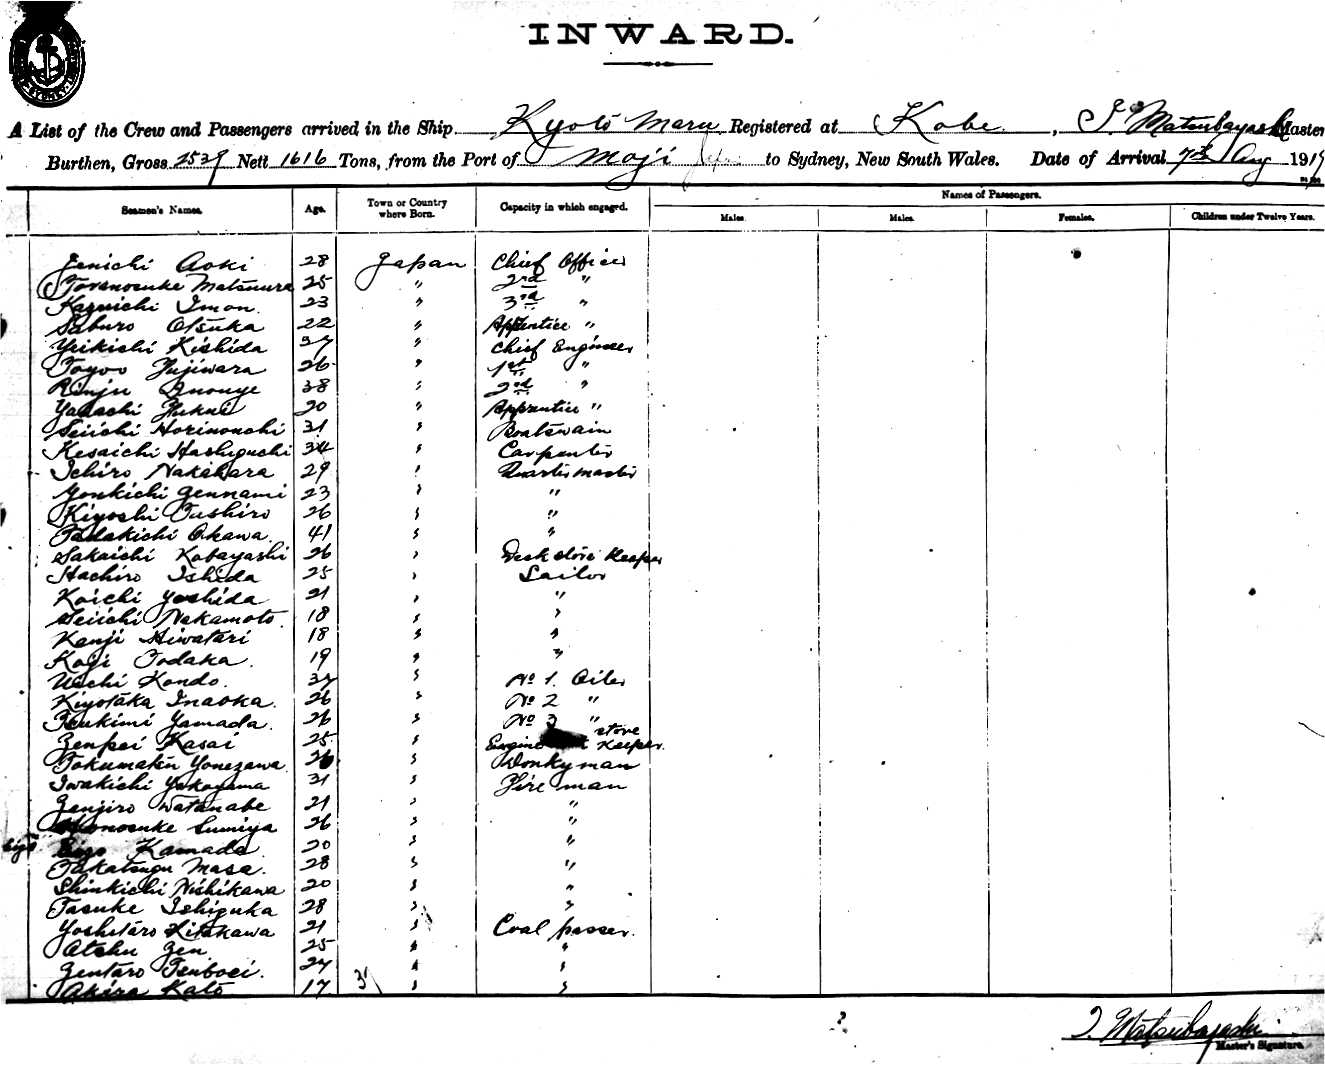 INWARD.
A List of the Crew and Passengers arrived in the Ship Kyoto Maru Registered at Kobe, Matsubayashi Master
Burthen, Gross 2539 Nett 1616 Tons, from the Port of Moji to Sydney, New South Wales. Date of Arrival 7th Aug 1919
Seamen's Names. Age. Town or Country where Born. Capacity in which engaged. Names of Passengers.
Males. Males. Females. Children under Twelve Years.
Jenichi Aoki 28 Japan Chief Officer
Toranosuke Matsuura 25 " 2nd "
Kazuichi Imon. 23 " 3rd "
Saburo Otsuka 22 " Apprentice "
Yeikichi Kishida 37 " Chief Engineer
Toyoo Fujiwara 26 " 1st "
Rinju Inouye 38 " 2nd "
Fukui 20 " Apprentice "
Seiichi Horinouchi 31 " Boatswain
Kesaichi Hashiguchi 34 " Carpenter
Ichiro Nakahara 29 " Quartermaster
Yonkichi Gennami 23 " "
Kiyoshi Tashiro 26 " "
Tadakichi Okawa. 41 " "
Sakaichi Kobayashi 26 " Deck store keeper
Hachiro Ishida 25 " Sailor
Koichi Yoshida 21 " "
Seiichi Nakamoto. 18 " "
Kenji Hiwatari 18 " "
Koji Todaka. 19 " "
Uichi Kondo. 37 " No 1. Oiler
Kiyotaka Inaoka. 26 " No 2 "
Tsukimi Yamada. 26 " No 3 "
Zenpei Kasai 25 " Engine store Keeper.
Tokumatsu Yonezawa. 26 " Donkyman
Iwakichi Yokoyama 31 " Fireman
Zenjiro Watanabe 21 " "
Sumiya 26 " "
Eigo Kamada. 20 " "
Takatsugu Masa. 28 " "
Shinkichi Nishikawa 20 " "
Tasuke Ishizuka 28 " "
Yoshitaro Kitakawa 21 " Coal passer.
Atshu Zen 25 " "
Zentaro Tsuboei. 27 " "
Akira Kato 17 " "
T. Matsubayashi
Master's Signature.